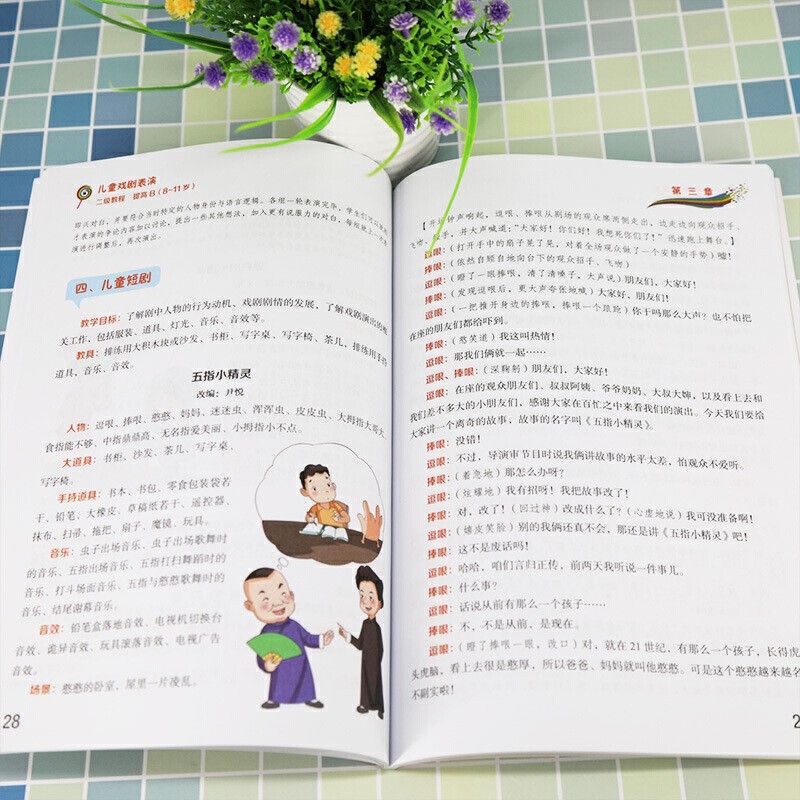 儿童戏剧表演
二级教程 提高B（8-11岁）
即兴对白，并要符合当时特定的人物身份与语言逻辑。各组一轮表演完毕，学生们可以就刚
才表演的争论内容加以讨论，提出一些其他想法，加入更有说服力的对白，每组就上一次表
演进行调整后，再次演出。
四、儿童短剧
教学目标：了解剧中人物的行为动机、戏剧剧情的发展，了解戏剧演出的相
关工作，包括服装、道具、灯光、音乐、音效等。
教具：排练用大积木块或沙发、书柜、写字桌、写字椅、茶几，排练用手持
道具，音乐、音效。
五指小精灵
改编：尹悦
人物：逗哏、捧哏、憨憨、妈妈、迷迷虫、浑浑虫、皮皮虫、大拇指大哥大、
食指能不够、中指鼎鼎高、无名指爱美丽、小拇指小不点。
大道具：书柜、沙发、茶几、写字桌、
写字椅。
手持道具：书本、书包、零食包装袋若
干、铅笔、大橡皮、草稿纸若干、遥控器、
抹布、扫帚、拖把、扇子、魔镜、玩具。
音乐：虫子出场音乐、虫子出场歌舞时
的音乐、五指出场音乐、五指打扫舞蹈时的
音乐、打斗场面音乐、五指与憨憨歌舞时的
音乐、结尾谢幕音乐。
音效：铅笔盒落地音效、电视机切换台
音效、诡异音效、玩具滚落音效、电视广告
音效。
场景：憨憨的卧室，屋里一片凌乱。
28
第三章
【开场钟声响起，逗哏、捧哏从剧场的观众席两侧走出，边走边向观众招手、
飞吻、握手，并大声喊道：“大家好！你们好！我想死你们了！” 迅速跑上舞台。】
逗哏：（打开手中的扇子晃了晃，对着全场观众做了一个安静的手势）嘘！
捧哏：（依然自顾自地向台下的观众招手、飞吻）
逗哏：（瞪了一眼捧哏，清了清嗓子，大声说）朋友们，大家好！
捧哏：（发现逗哏后，更大声夸张地喊）大家好，朋友们！
逗哏：（一把推开身边的捧哏，捧哏一个踉跄）你干吗那么大声？也不怕把
在座的朋友们都给吓到。
捧哏：（憨笑道）我这叫热情！
逗哏：那我们俩就一起……
逗哏、捧哏：（深鞠躬）朋友们，大家好！
逗哏：在座的观众朋友们、叔叔阿姨、爷爷奶奶、大叔大婶，以及看上去和
我们差不多大的小朋友们，感谢大家在百忙之中来看我们的演出。今天我们要给
大家讲一个离奇的故事，故事的名字叫《五指小精灵》。
捧哏：没错！
逗哏：不过，导演审节目时说我俩讲故事的水平太差，怕观众不爱听。
捧哏：（着急地）那怎么办呀？
逗哏：（炫耀地）我有招呀！我把故事改了！
捧哏：对，改了！（回过神）改成什么了？（心虚地说）我可没准备啊！
逗哏：（嬉皮笑脸）别的我俩还真不会，那还是讲《五指小精灵》吧！
捧哏：这不是废话吗！
逗哏：哈哈，咱们言归正传，前两天我听说一件事儿。
捧哏：什么事？
逗哏：话说从前有那么一个孩子……
捧哏：不，不是从前，是现在。
逗哏：（瞪了捧哏一眼，改口）对，就在21世纪，有那么一个孩子，长得虎
头虎脑，看上去很是憨厚，所以爸爸、妈妈就叫他憨憨。可是这个憨憨越来越名
不副实啦！